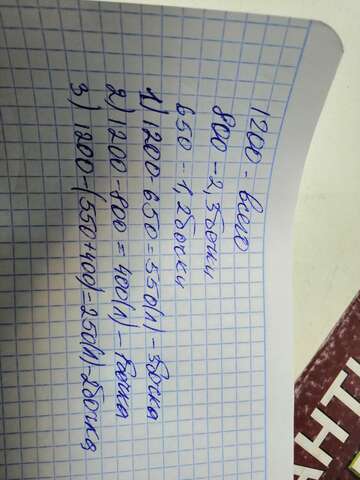 1200 - всего
800 - 2, 3 бочки
650 - 1, 2 бочки
1) 1200 - 650 = 550 (л) - 3 бочка
2) 1200 - 800 = 400 (л) - 1 бочка
3) 1200 - (550 + 400) = 250 (л) - 2 бочка
АНТИ